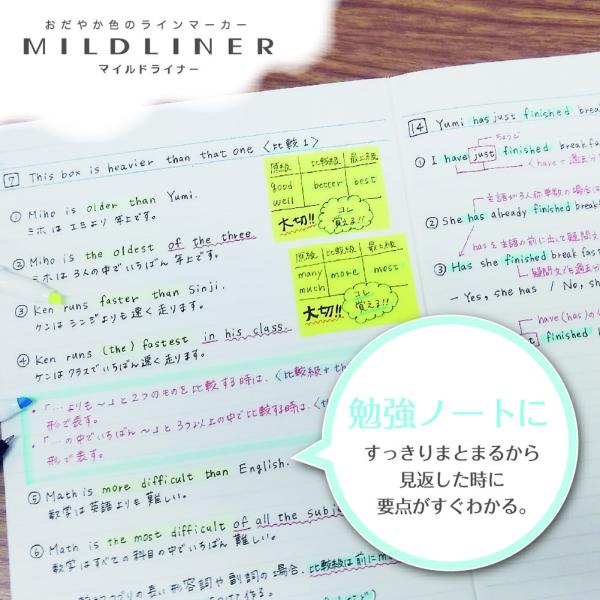 おだやか色のラインマーカー
MILDLINER
マイルドライナー
7 This box is heavier than that one 〈比較1〉
① Miho is older than Yumi.
ミホは ユミより 年上です。
② Miho is the oldest of the three
ミホは 3人の中でいちばん 年上です。
③ Ken runs faster than Sinji.
ケンは シンジよりも 速く 走ります。
④ Ken runs (the) fastest in his class
ケンは クラスでいちばん 速く 走ります。
・「…よりも〜」と2つのものを比較する時は、〈比較級+th
形で表す。
・「…の中でいちばん〜」と3つ以上の中で比較する時は、〈th
形で表す。
⑤ Math is more difficult than English.
数学は 英語よりも 難しい。
⑥ Math is the most difficult of all the subj
数学は すべての 科目の中で いちばん 難しい。
つづりの長い 形容詞や副詞の場合、比較級は前にm
つけて作る。
原級 比較級 最上級
good better best
well
大切!!
コレ
覚える!!
原級 比較級 最上級
many more most
much
大切!!
コレ
覚える!!
14 Yumi has just finished brea
ちょうど
① I have just finished breakfa
〈have+過去分
主語が3人称単数の場合は
② She has already finished break
hasを主語の前に出して疑問文
③ Has she finished breakfast
疑問文でも過去分
– Yes, she has / No, sh
have(has)の
finished b
勉強ノートに
すっきりまとまるから
見返した時に
要点がすぐわかる。